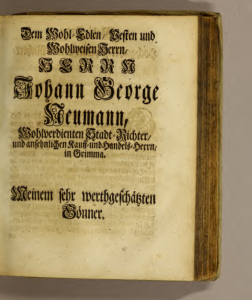 Dem Wohl-Edlen/Vesten und
Wohlweisen Herrn/
HERRN
Johann George
Neumann,
Wohlverdienten Stadt-Richter/
und ansehnlichen Kauff-und Handels-Herrn,
in Grimma.
Meinem sehr werthgeschätzten
Gönner.